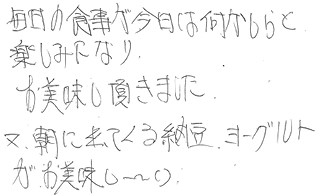 毎日の食事が今日は何かしらと
楽しみになり
お美味し頂きました
又、朝に出てくる納豆、ヨーグルト
がお美味し〜い